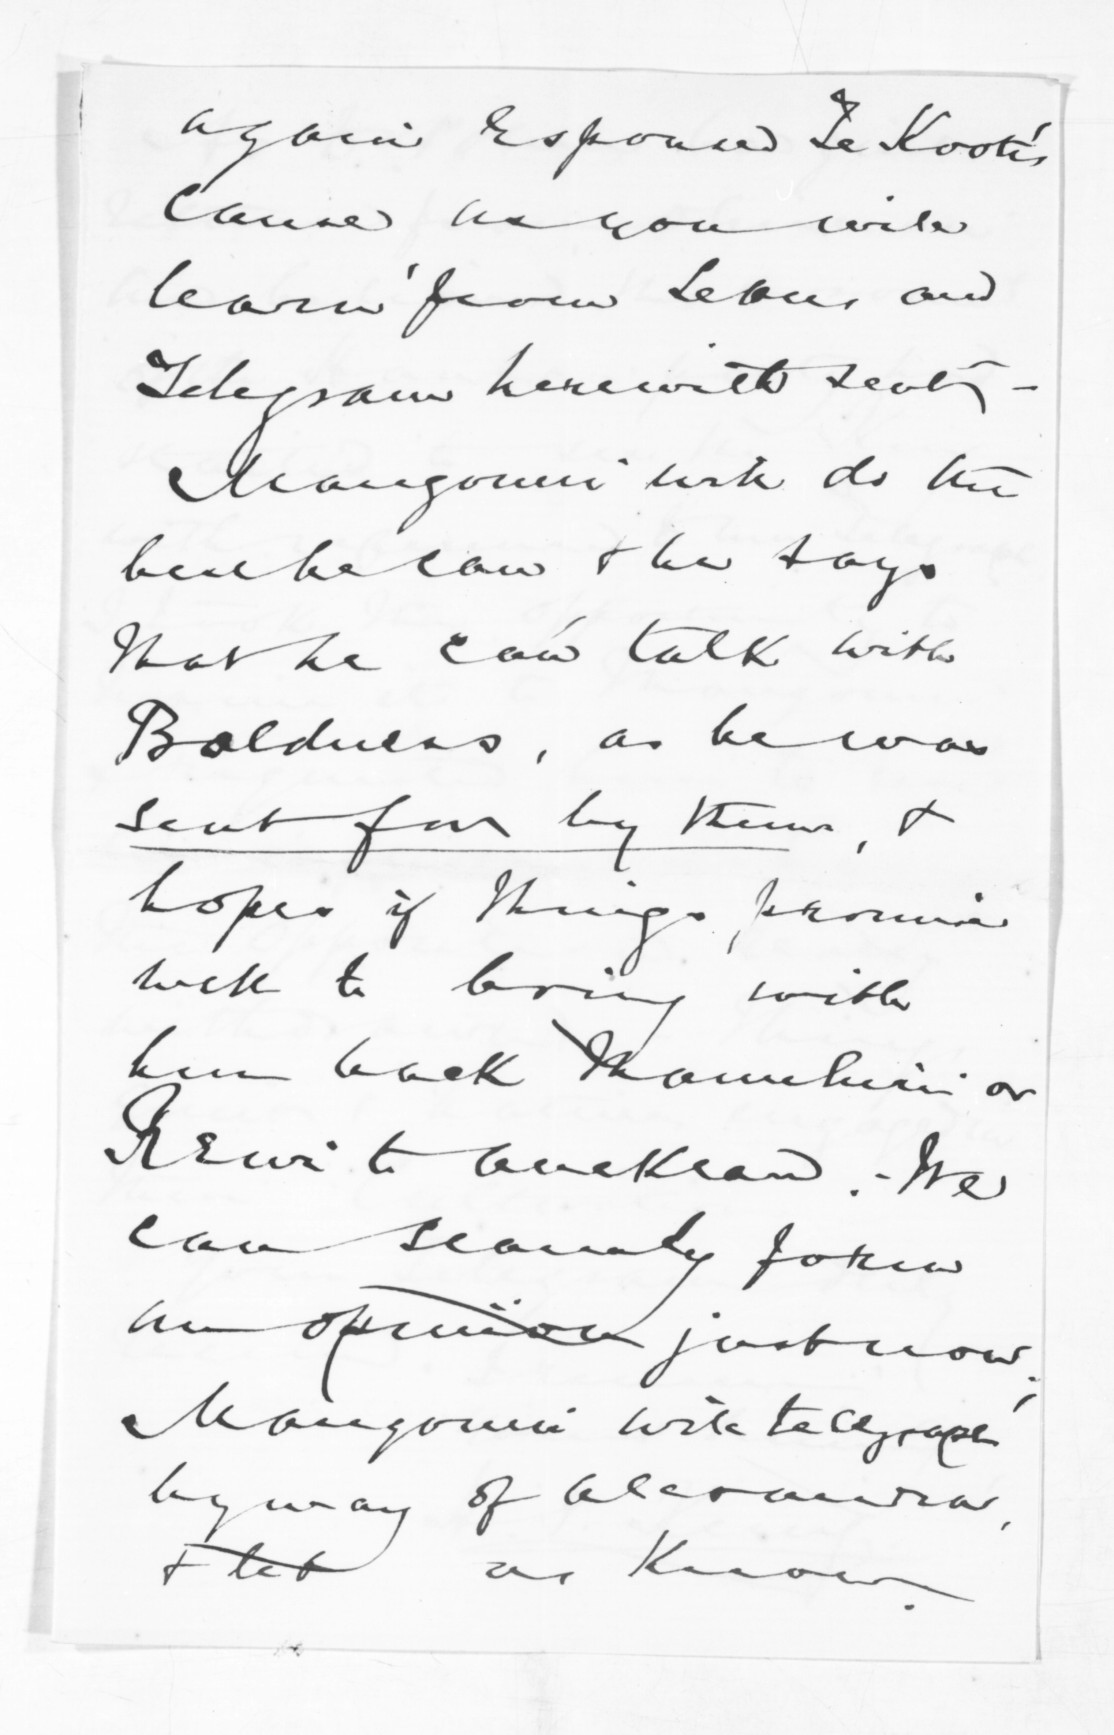 again Espoused Te Kooti's
Cause as you will
learn from Letter and
Telegram herewith sent, -
Maungonui will do the
best he can & he says
that he can talk with
Boldness, as he was
sent for by them, &
hopes if things promise
well to bring with
him back Manuhiri or
Rewi to Auckland. - We
can scarcely form
an opinion just now,
Maungonui will tellegraph
by way of Alexandra,
& let us Know.